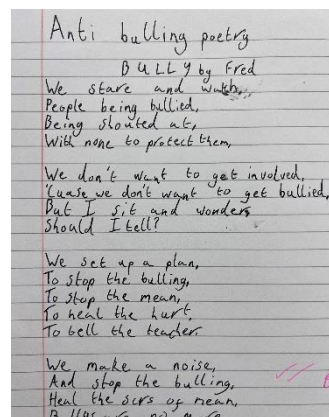 Anti bulling poetry
BULLY by Fred
We stare and watch,
People being bullied,
Being shouted at,
With none to protect them,
We don't want to get involved,
'Cuase we don't want to get bullied,
But I sit and wonder,
Should I tell?
We set up a plan,
To stop the bulling,
To stop the mean,
To heal the hurt,
To tell the teacher.
We make a noise,
And stop the bulling,
Heal the scrs of mean,